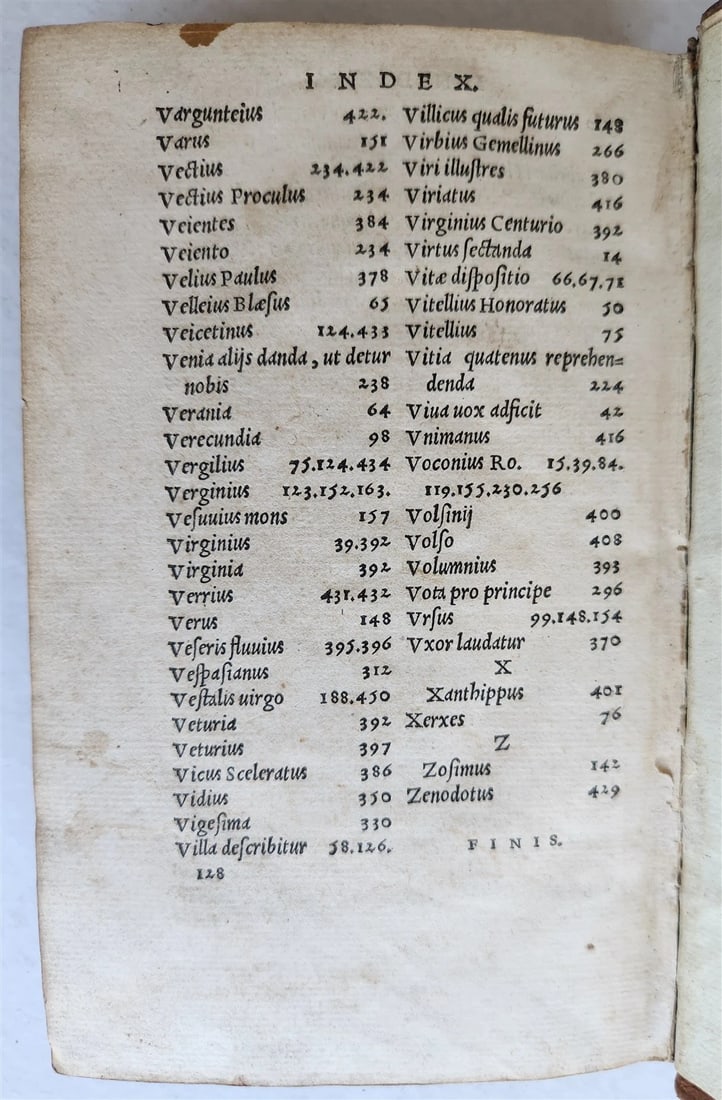 INDEX.
Vargunteius 422.
Varus 151
Vectius 234.422
Vectius Proculus 234
Veientes 384
Veiento 234
Velius Paulus 378
Velleius Blæsus 65
Veicetinus 124.433
Venia alijs danda, ut detur
nobis 238
Verania 64
Verecundia 98
Vergilius 75.124.434
Verginius 123.152.163.
Veſuuius mons 157
Virginius 39.392
Virginia 392
Verrius 431.432
Verus 148
Veſeris fluuius 395.396
Veſpaſianus 312
Veſtalis uirgo 188.450
Veturia 392
Veturius 397
Vicus Sceleratus 386
Vidius 350
Vigeſima 330
Villa deſcribitur 58.126.
128
Villicus qualis futurus 148
Virbius Gemellinus 266
Viri illuſtres 380
Viriatus 416
Virginius Centurio 392
Virtus ſectanda 14
Vitæ diſpoſitio 66,67.71
Vitellius Honoratus 50
Vitellius 75
Vitia quatenus reprehen=
denda 224
Viua uox adficit 42
Vnimanus 416
Voconius Ro. 15.39.84.
119.155.230.256
Volſinij 400
Volſo 408
Volumnius 393
Vota pro principe 296
Vrſus 99.148.154
Vxor laudatur 370
X
Xanthippus 401
Xerxes 76
Z
Zoſimus 142
Zenodotus 429
FINIS.